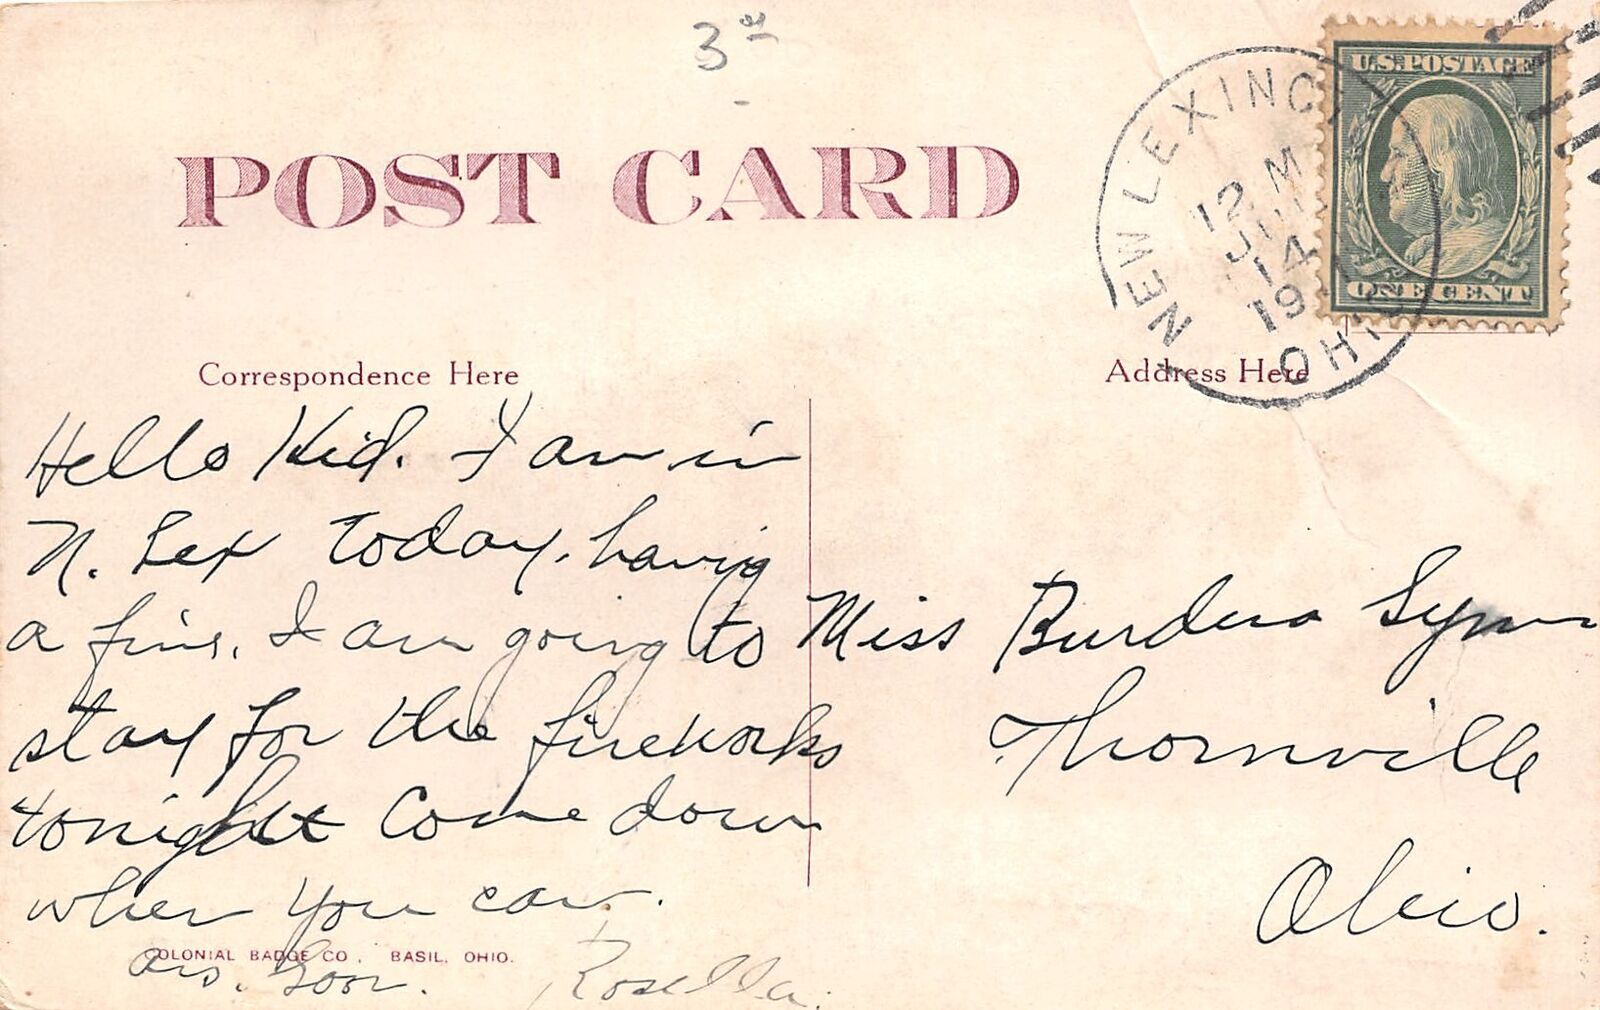 3
POST CARD
U.S. POSTAGE
ONE CENT
NEW LEXINGT
OHIO
12 M
14
19
Correspondence Here
Address Here
Hello Kid. I am in
N. Lex today. having
a fine. I am going to
stay for the fireworks
tonight Come down
when you can.
Ans. Soon. Rosella.
Miss Burdena
Thornville
Ohio.
COLONIAL BADGE CO., BASIL, OHIO.